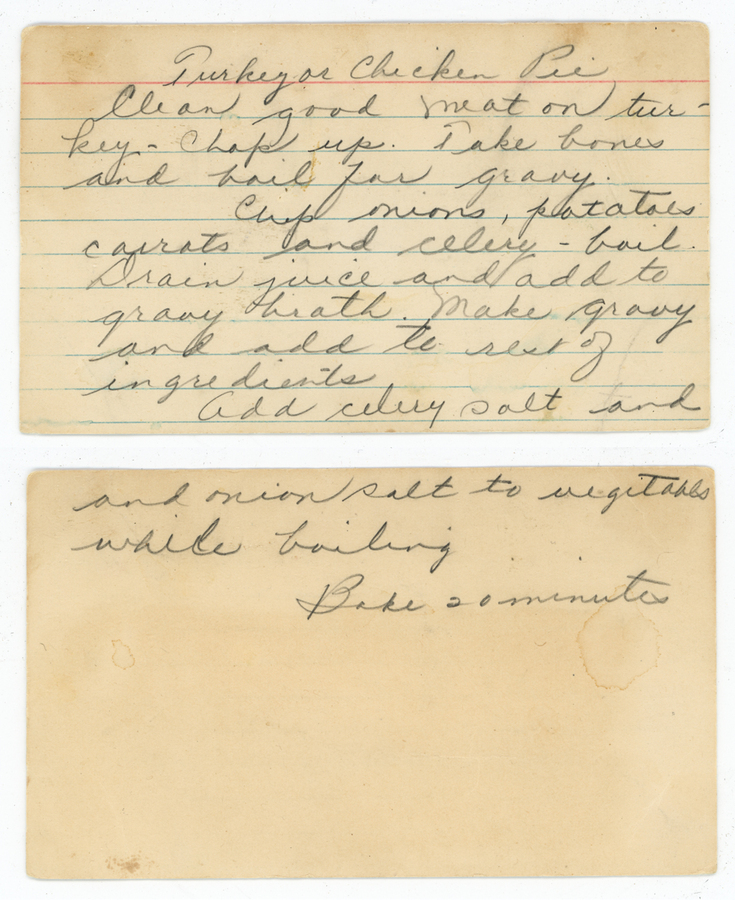 Turkey or Chicken Pie
Clean good meat on tur-
key - Chop up. Take bones
and boil for gravy.
Cup onions, potatoes
carrots and celery - boil.
Drain juice and add to
gravy broth. Make gravy
and add to rest of
ingredients
Add celery salt and
and onion salt to vegitables
while boiling
Bake 20 minutes